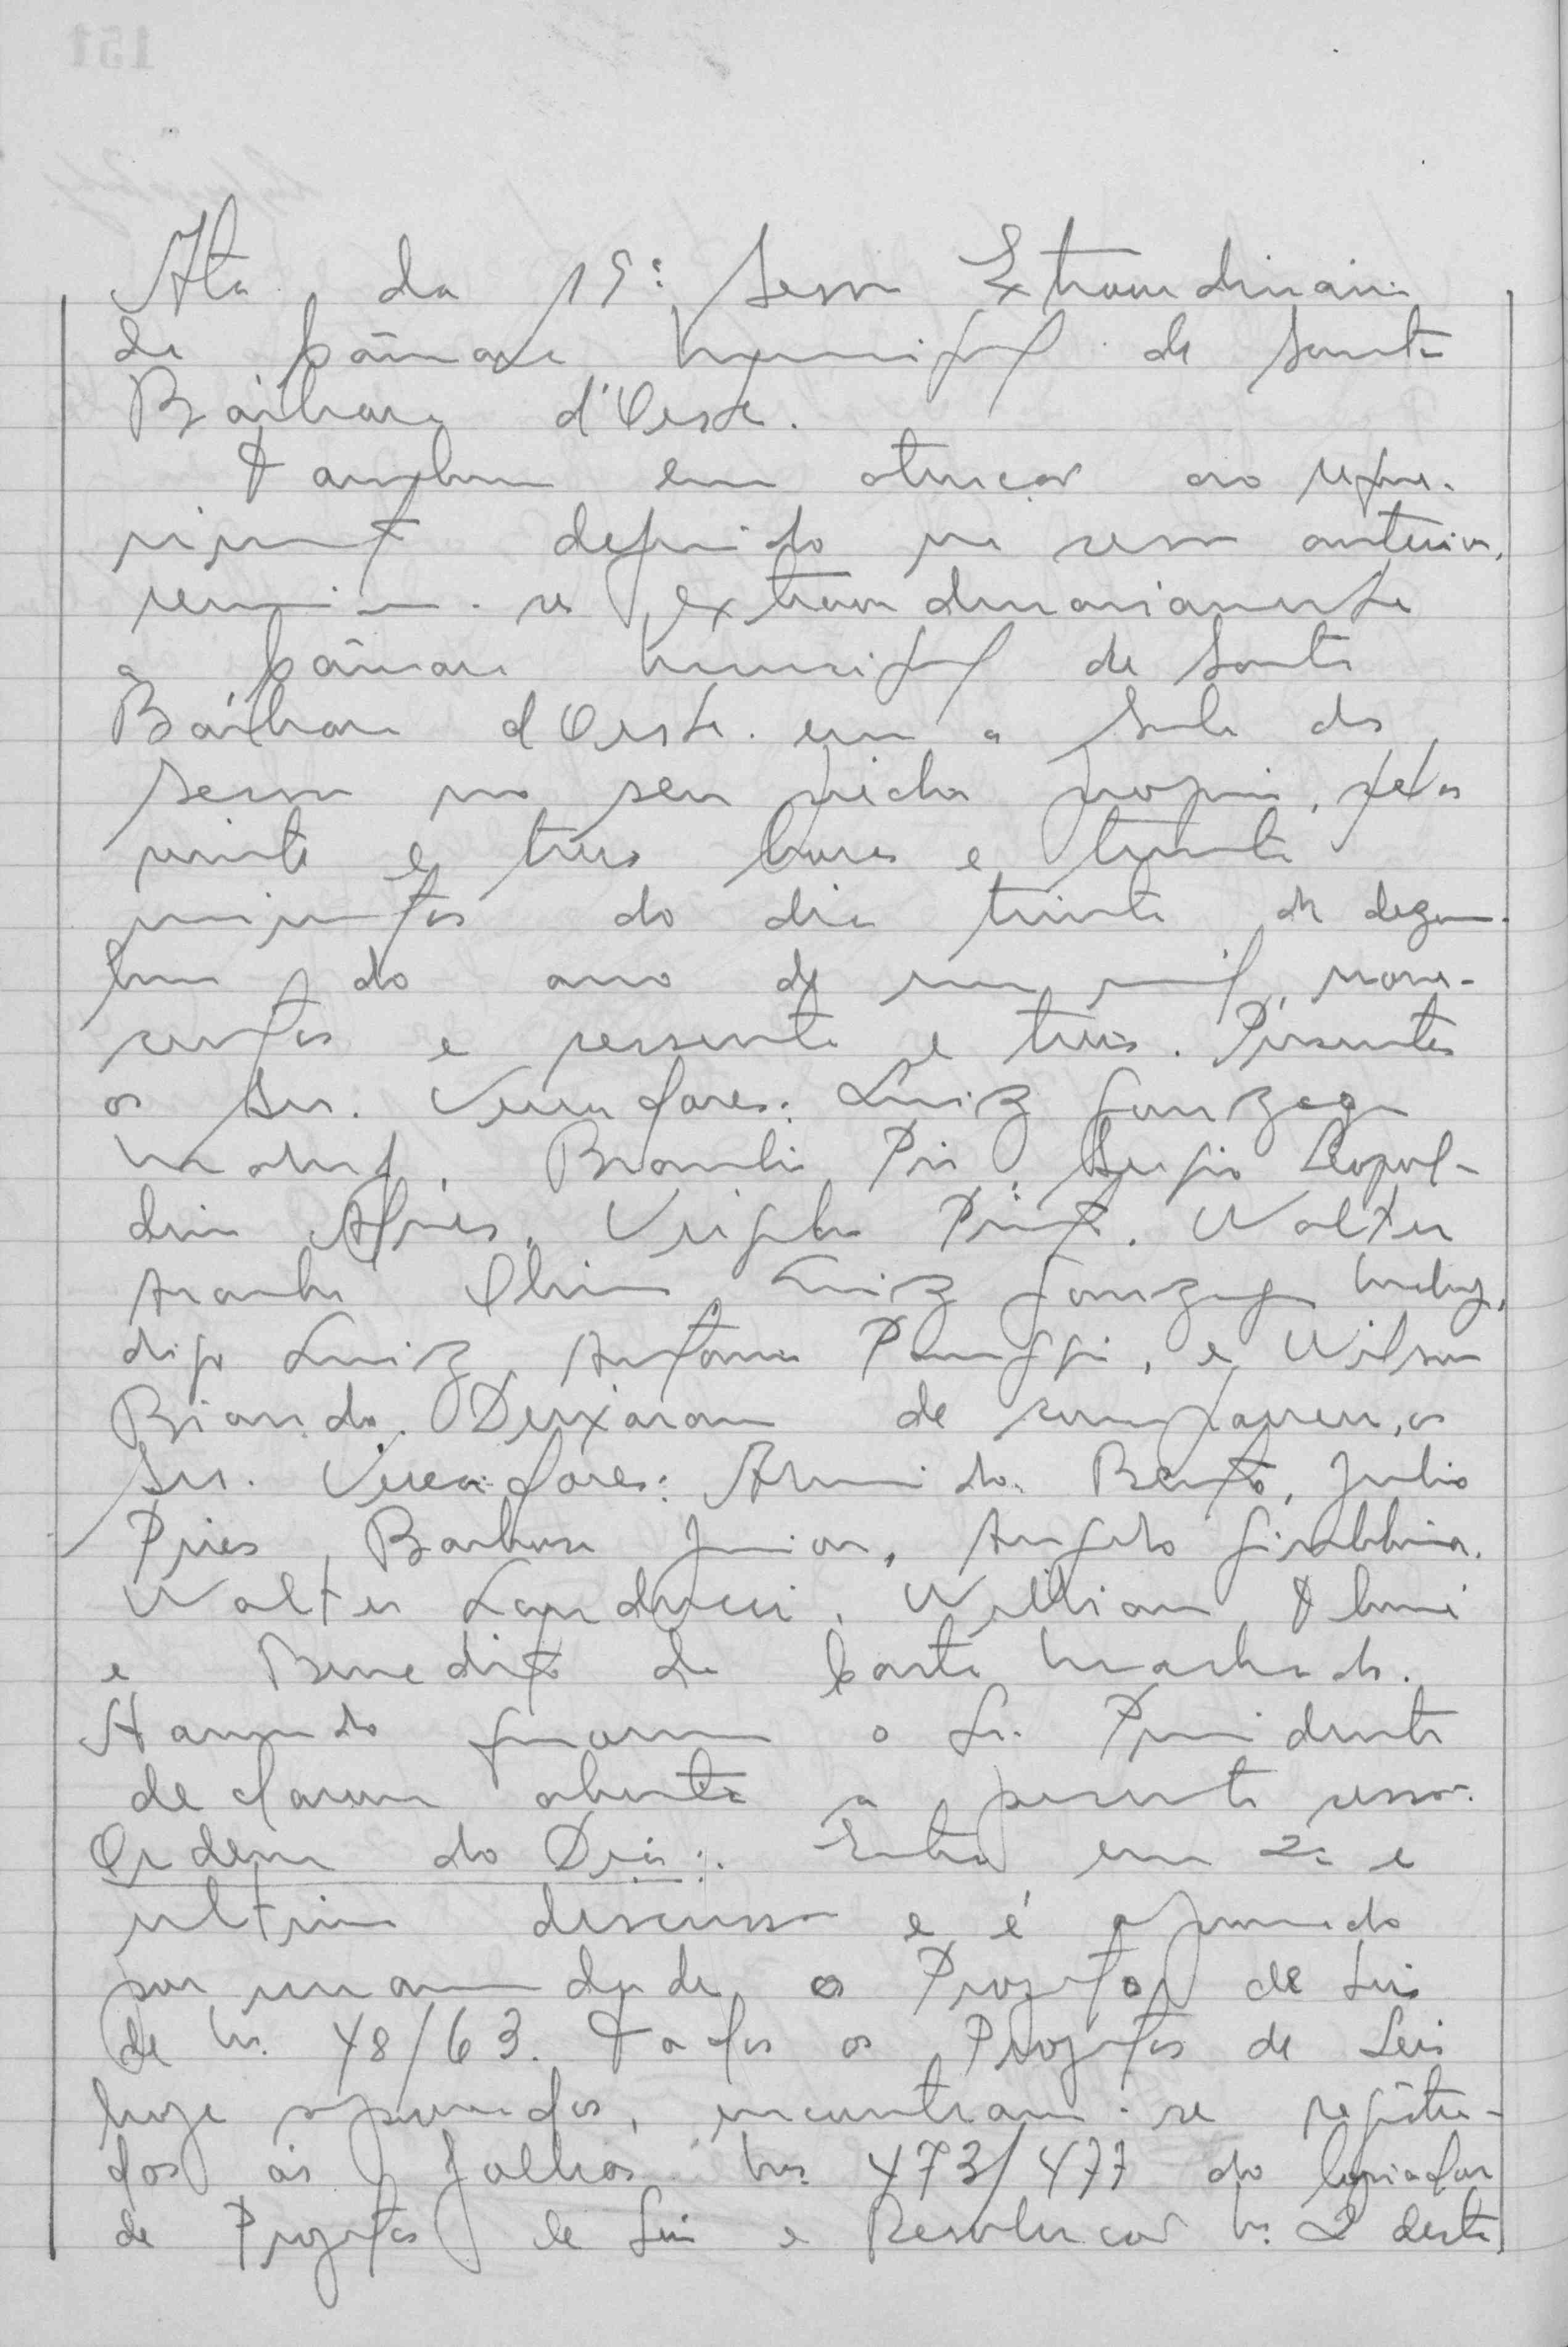 Ata da 15ª Sessão Extraordinária
da Câmara Municipal de Santa
Bárbara d'Oeste.
Tambem em atenção ao reque-
rimento deferido na sessão anterior,
reuniu-se extraordinariamente
a Câmara Municipal de Santa
Bárbara d'Oeste em a Sala das
Sessões no seu predio proprio, pelas
vinte e tres horas e trinta
minutos do dia trinta de dezem-
bro do ano de um mil, nove-
centos e sessenta e tres. Presentes
os Srs. Vereadores: Luiz Gonzaga
Braulio Pio, Sergio Leopol-
dino Alves, Vergilio Pinto, Walter
Aranha Luiz Gonzaga
digo Luiz Antonio Panuggi, e Wilson
Biondo. Deixaram de comparecer, os
Srs. Vereadores: Bento, Julio
Pires Barbosa Junior, Angelo Giubbina,
Walter Landucci, Willian
e Benedito da Costa Machado.
Havendo numero o Sr. Presidente
declarou aberta a presente sessão.
Ordem do Dia: Entra em 2ª e
ultima discussão e é aprovado
por unanimidade os Projetos de Leis
de Nº 48/63. Todos os Projetos de Leis
hoje aprovados, encontram-se registra-
dos ás folhas Nºs 473/477 do Copiador
de Projetos de Lei e Resolução Nº 2 desta